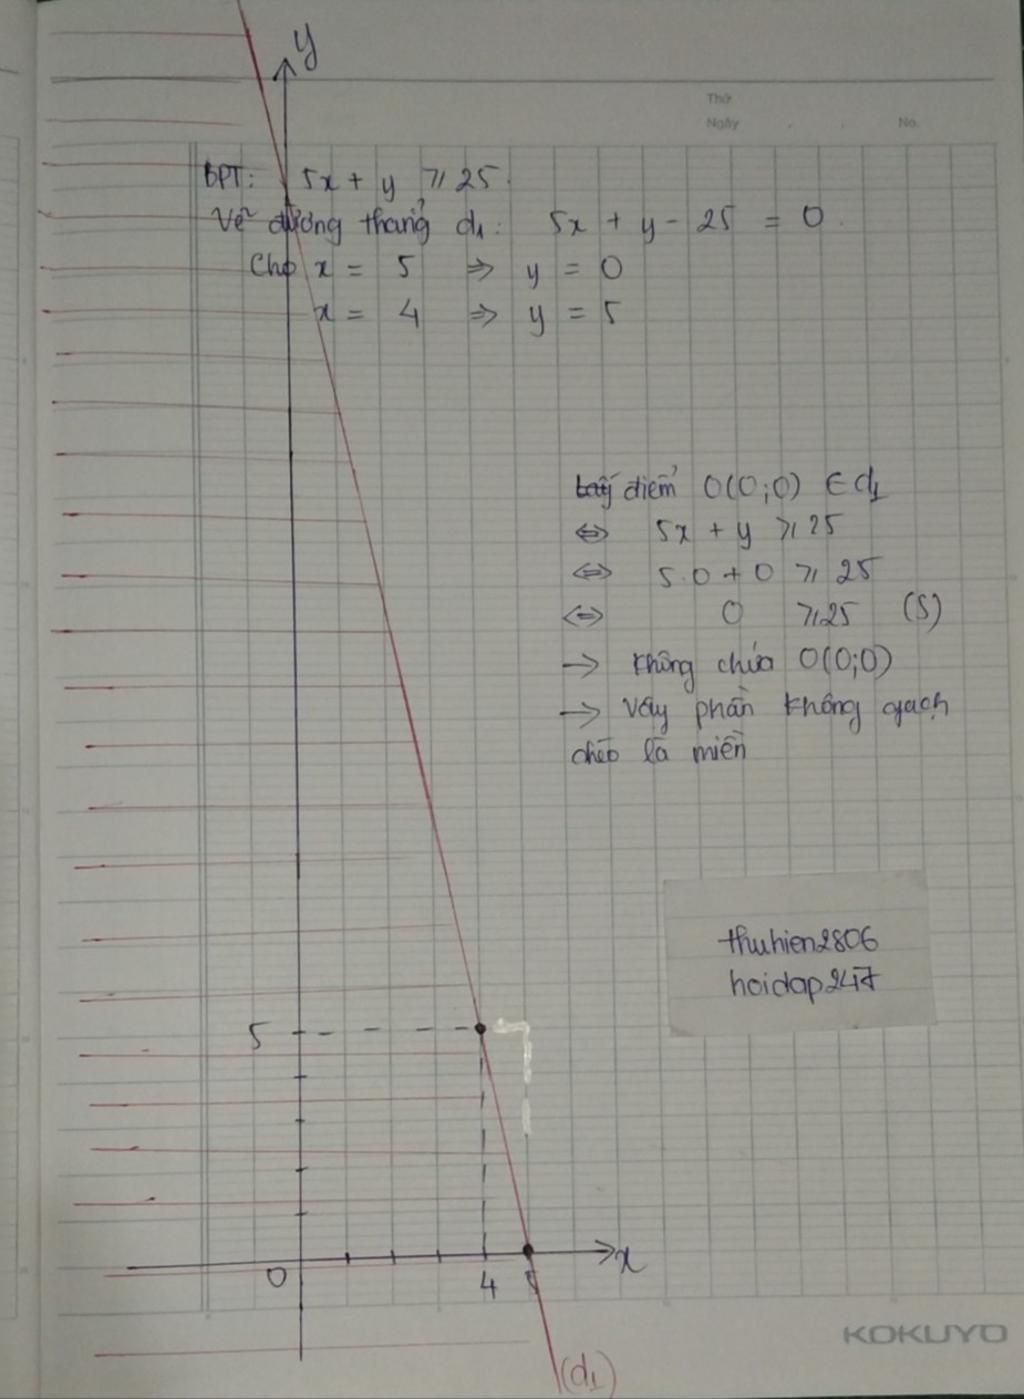 y
Thứ
Ngày
No.
BPT: 5x + y ⩾ 25
Vẽ đường thẳng d₁: 5x + y - 25 = 0.
Cho x = 5 ⇒ y = 0
x = 4 ⇒ y = 5
điểm O(0;0) ∈ d₁
⇔ 5x + y ⩾ 25
⇔ 5.0 + 0 ⩾ 25
⇔ 0 ⩾ 25 (S)
→ không chứa O(0;0)
→ Vậy phần không gạch
chéo là miền
thuhien2806
hoidap247
5
x
0 4 5
KOKUYO
(d₁)